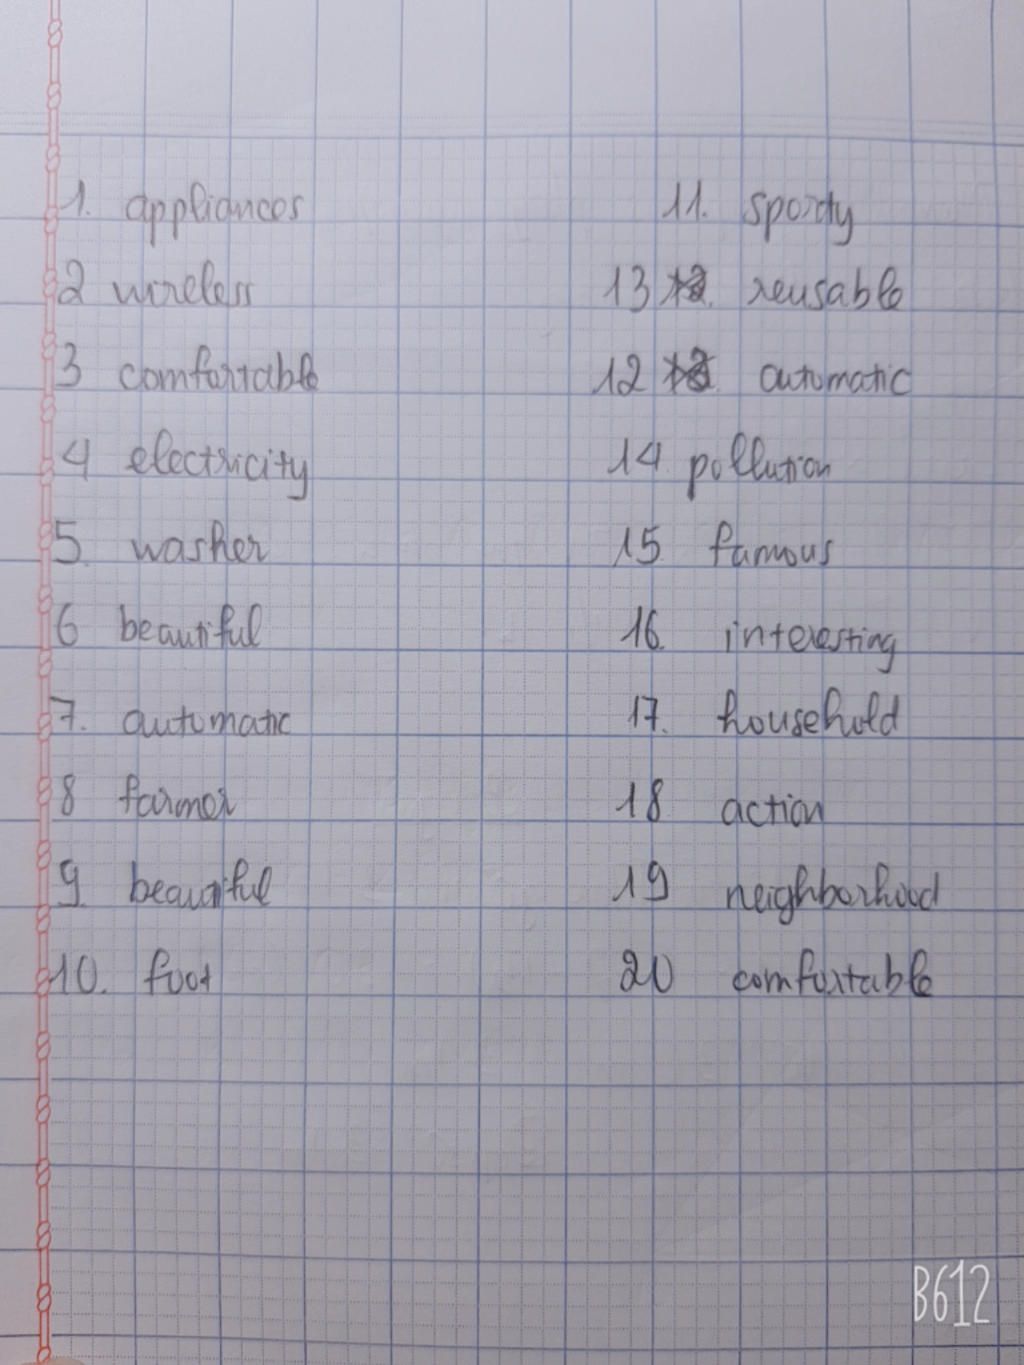 1. appliances
2 wireless
3 comfortable
4 electricity
5. washer
6 beautiful
7. automatic
8 farmer
9. beautiful
10. foot
11. sporty
13 reusable
12 automatic
14 pollution
15 famous
16. interesting
17. household
18 action
19 neighborhood
20 comfortable
B612